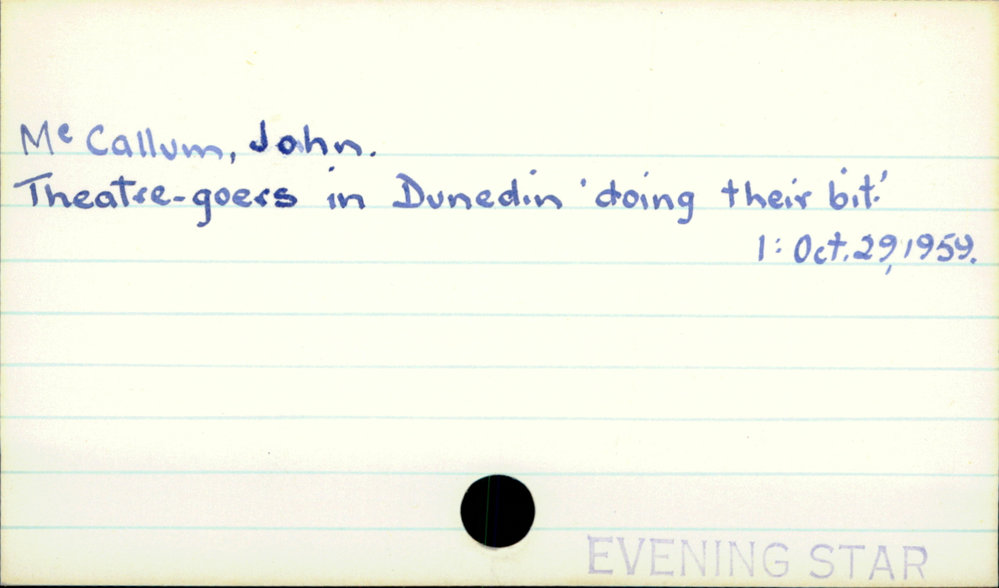 Mc Callum, John.
Theatre-goers in Dunedin 'doing their bit.'
1: Oct. 29, 1959.
EVENING STAR